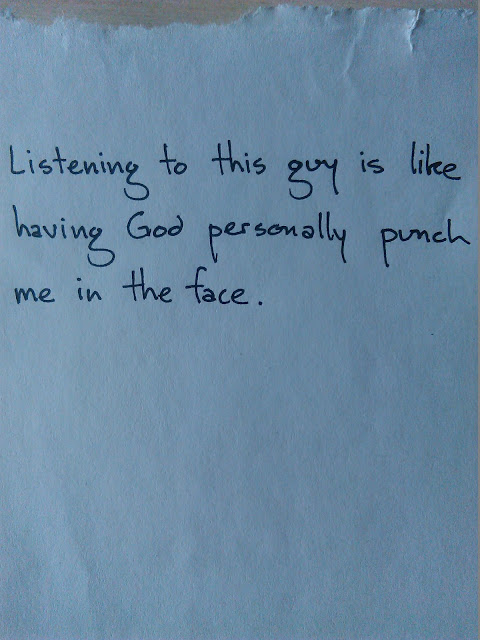 Listening to this guy is like
having God personally punch
me in the face.